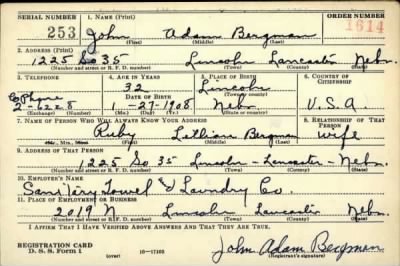 SERIAL NUMBER 1. NAME (Print) ORDER NUMBER
253 John Adam Bergman 1614
(First) (Middle) (Last)
2. ADDRESS (Print)
1225 So 35 Lincoln Lancaster Nebr.
(Number and street or R. F. D. number) (Town) (County) (State)
3. TELEPHONE 4. AGE IN YEARS 5. PLACE OF BIRTH 6. COUNTRY OF CITIZENSHIP
32 Lincoln
DATE OF BIRTH (Town or county)
Phone
2-6228 1-27-1908 Nebr. U.S.A.
(Exchange) (Number) (Mo.) (Day) (Yr.) (State or country)
7. NAME OF PERSON WHO WILL ALWAYS KNOW YOUR ADDRESS 8. RELATIONSHIP OF THAT PERSON
Ruby Lillian Bergman wife
(Mr., Mrs., Miss) (First) (Middle) (Last)
9. ADDRESS OF THAT PERSON
1225 So 35 Lincoln - Lancaster - Nebr.
(Number and street or R. F. D. number) (Town) (County) (State)
10. EMPLOYER'S NAME
Sanitary Towel & Laundry Co.
11. PLACE OF EMPLOYMENT OR BUSINESS
2019 N Lincoln Lancaster Nebr.
(Number and street or R. F. D. number) (Town) (County) (State)
I AFFIRM THAT I HAVE VERIFIED ABOVE ANSWERS AND THAT THEY ARE TRUE.
REGISTRATION CARD
D. S. S. Form 1 (over) 16-17105 John Adam Bergman
(Registrant's signature)